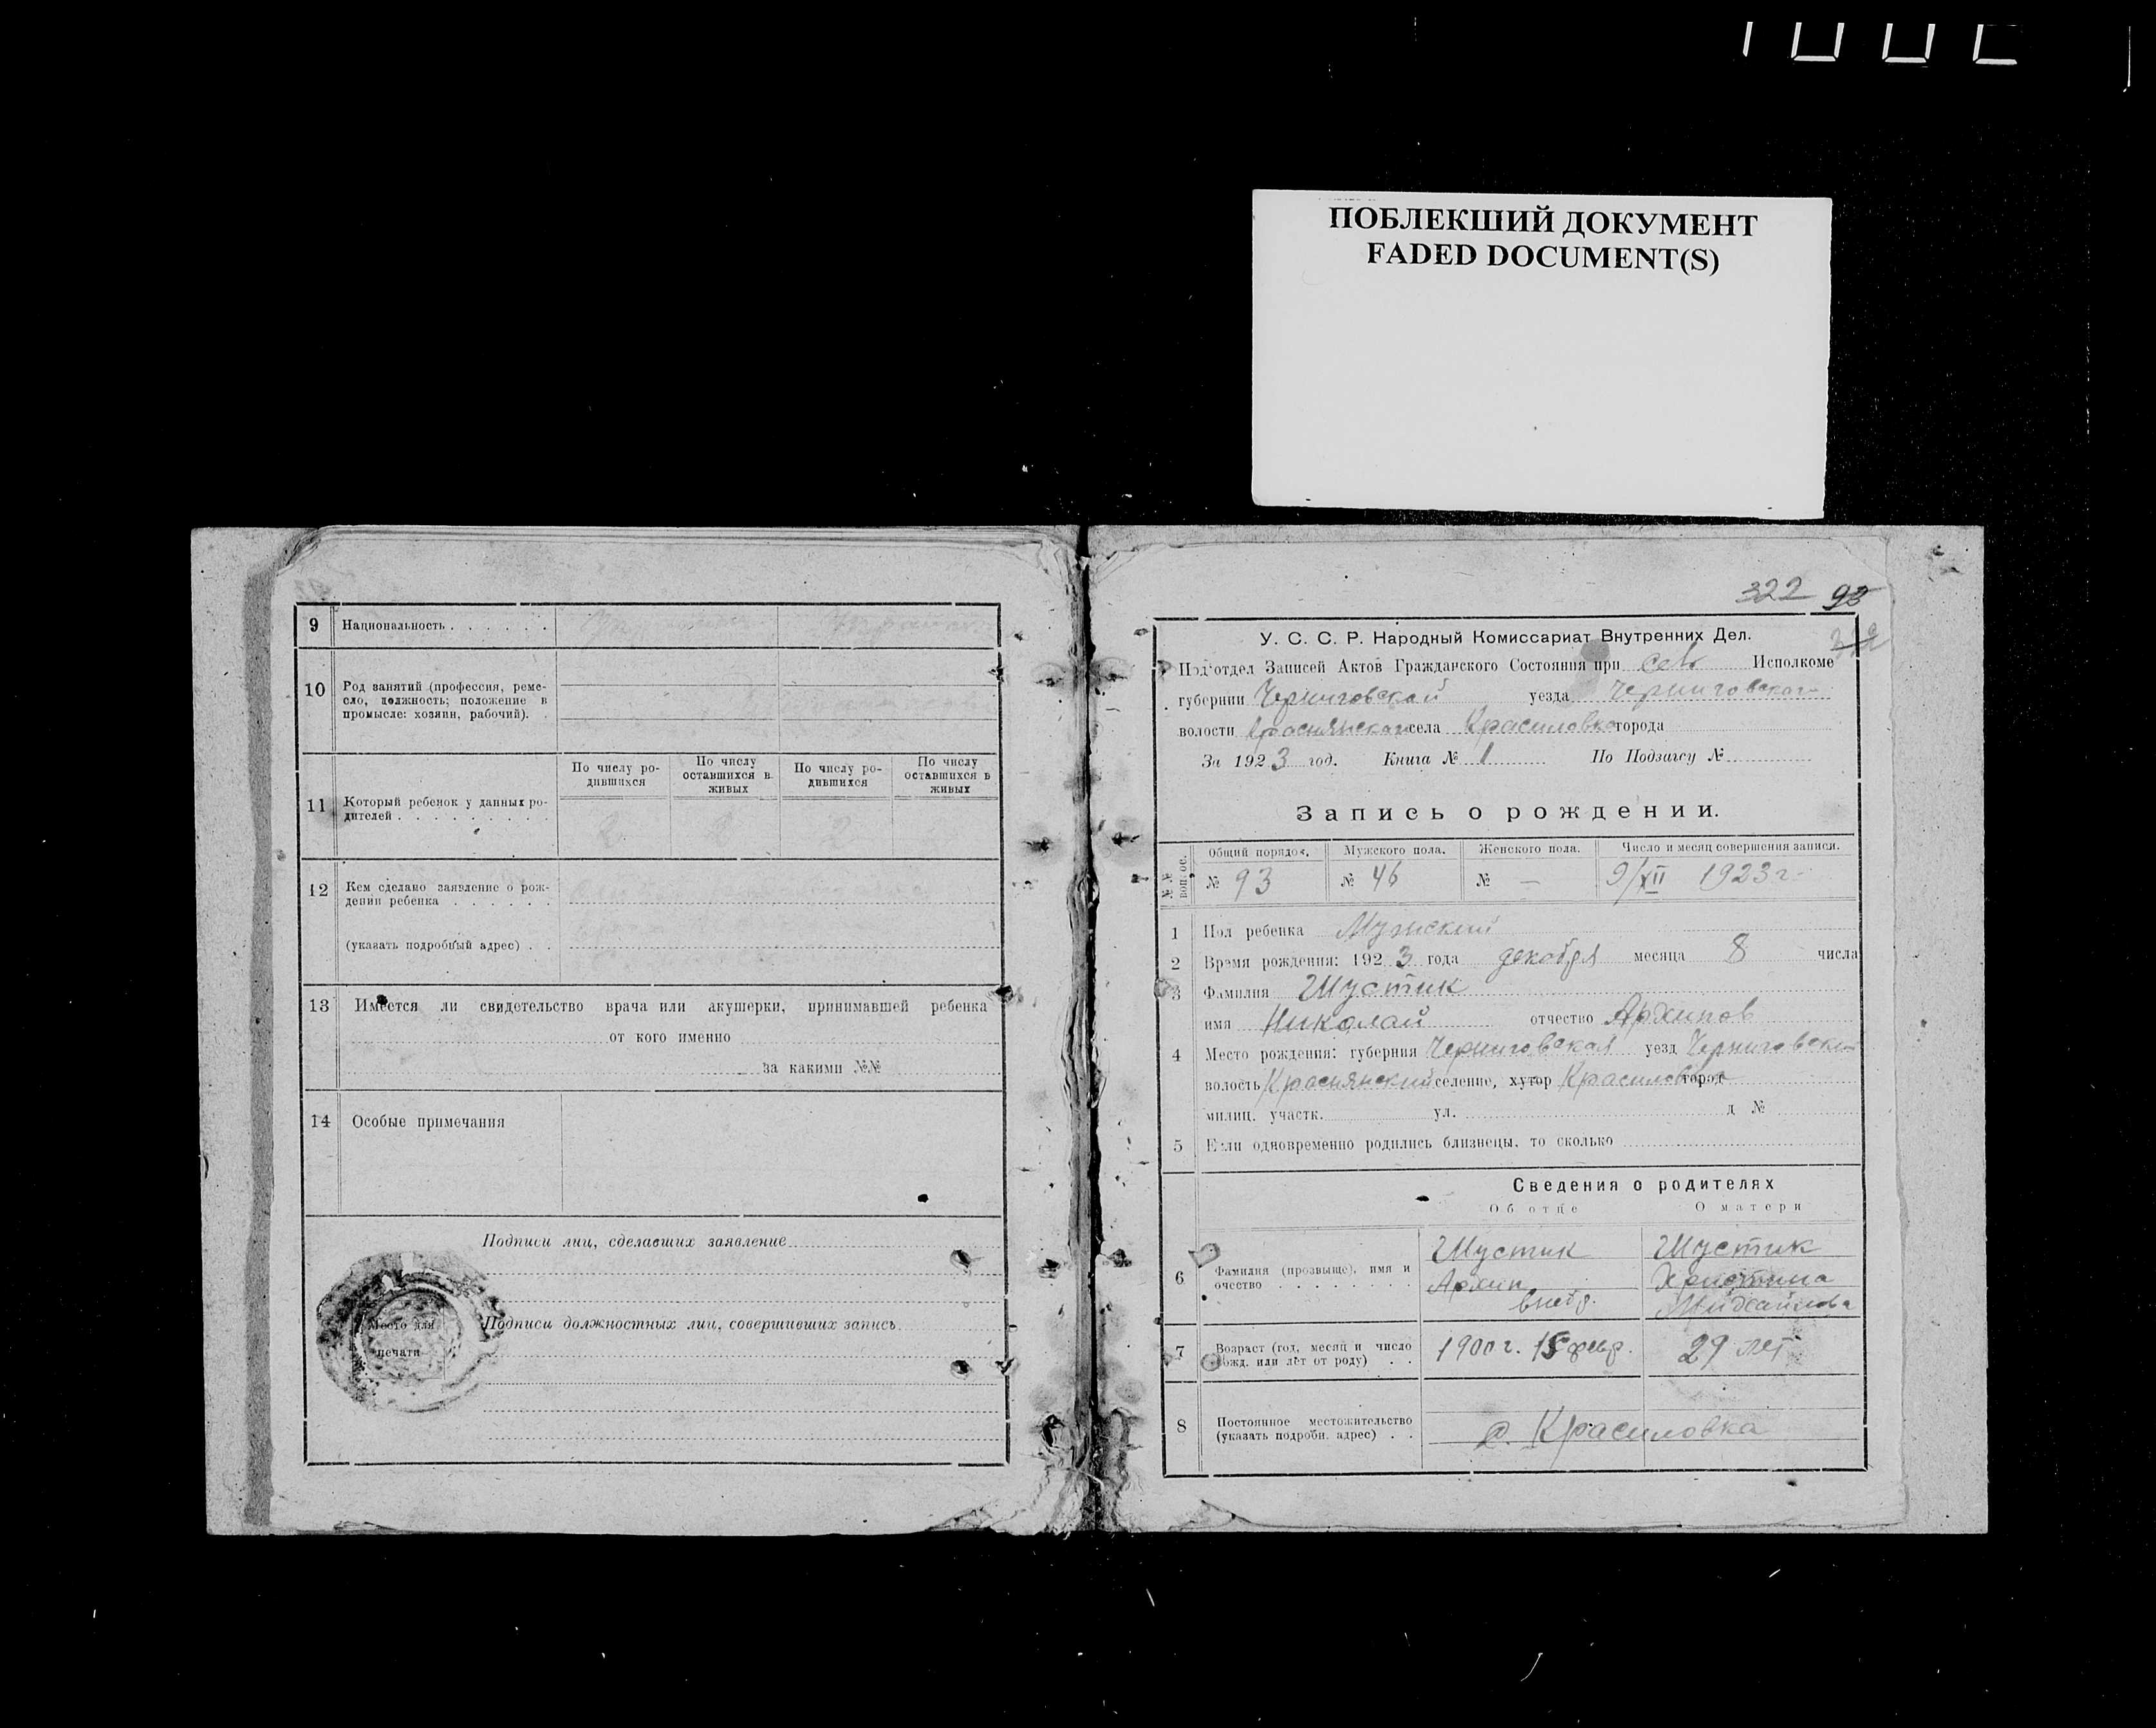 ПОБЛЕКШИЙ ДОКУМЕНТ
FADED DOCUMENT(S)
9 Национальность . . . . . .
10 Род занятий (профессия, реме-
сло, должность; положение в
промысле: хозяин, рабочий). .
11 Который ребенок у данных ро-
дителей . . . . . . . . .
По числу ро-
дившихся
По числу
оставшихся в
живых
По числу ро-
дившихся
По числу
оставшихся в
живых
2 2 2
12 Кем сделано заявление о рож-
дении ребенка . . . . . .
(указать подробный адрес) . .
13 Имеется ли свидетельство врача или акушерки, принимавшей ребенка
от кого именно
за какими №№
14 Особые примечания
Подписи лиц, сделавших заявление
Подписи должностных лиц, совершивших запись
Место для
печати
322 93
У. С. С. Р. Народный Комиссариат Внутренних Дел.
Подотдел Записей Актов Гражданского Состояния при Исполкоме
губернии Черниговской уезда Черниговского
волости села Красиловка города
За 1923 год. Книга № 1 По Подзагсу №
Запись о рождении.
№№ вопрос.
Общий порядок. Мужского пола. Женского пола. Число и месяц совершения записи.
№ 93 № 46 № — 9/XII 1923 г.
1 Пол ребенка Мужский
2 Время рождения: 1923 года декабря месяца 8 числа
3 Фамилия Шустик
имя Николай отчество Архипов
4 Место рождения: губерния Черниговская уезд Черниговский
волость Краснянский селение, хутор Красиловка город
милиц. участк. ул. д №
5 Если одновременно родились близнецы, то сколько
Сведения о родителях
Об отце О матери
6 Фамилия (прозвыще), имя и
очество . . . . . . .
Шустик
Архип
Шустик
Христина
Михайлова
7 Возраст (год, месяц и число
рожд. или лет от роду) . .
1900 г. 15 февр. 29 лет
8 Постоянное местожительство
(указать подробн. адрес) . .
с. Красиловка